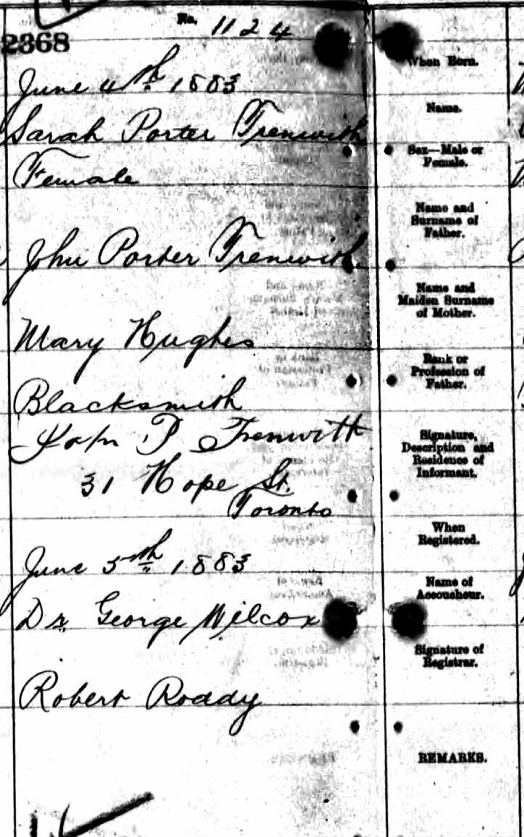 No. 1124
2368
June 4th 1883
When Born.
Sarah Porter Trenwith
Name.
Female
Sex—Male or
Female.
John Porter Trenwith
Name and
Surname of
Father.
Mary Hughes
Name and
Maiden Surname
of Mother.
Blacksmith
Rank or
Profession of
Father.
John P Trenwith
31 Hope St.
Toronto
Signature,
Description and
Residence of
Informant.
June 5th 1883
When
Registered.
Dr. George Wilcox
Name of
Accoucheur.
Robert Roady
Signature of
Registrar.
REMARKS.